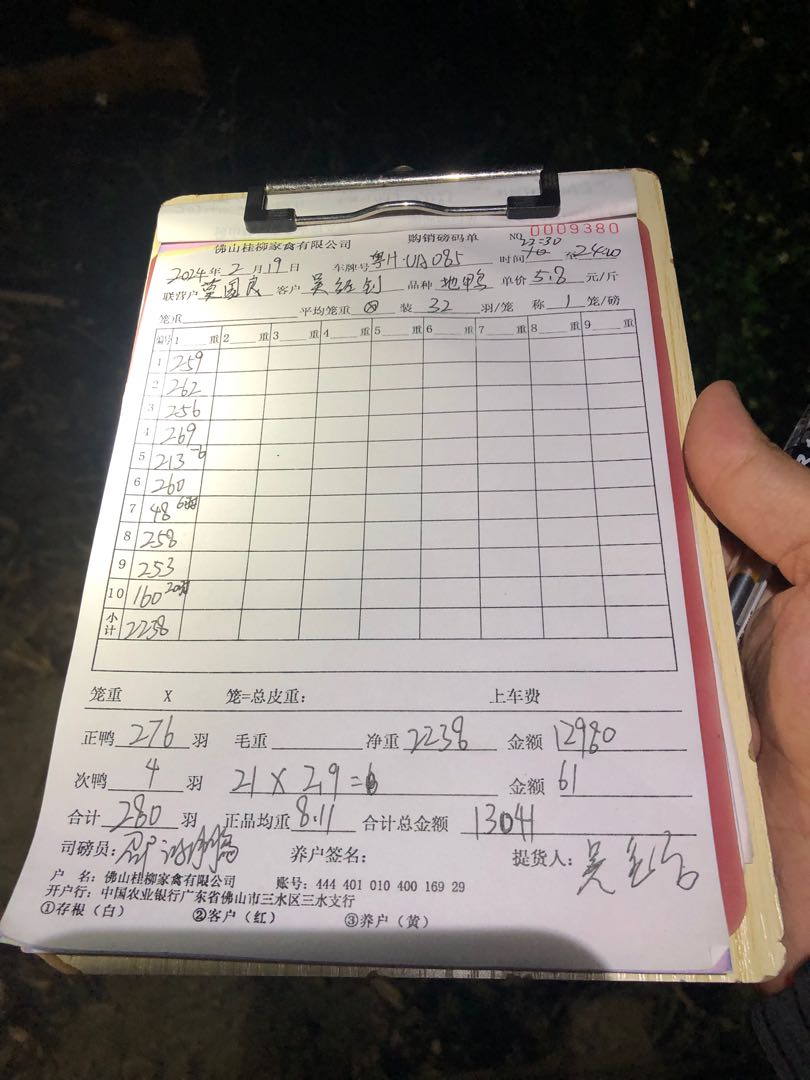 佛山桂柳家禽有限公司 购销磅码单 NO 0009380
2024年2月19日 车牌号 粤H·UA085 时间 22:30 至 24:20
联营户 莫国良 客户 吴 钊 品种 地鸭 单价 5.8 元/斤
笼重 平均笼重 装 32 羽/笼 称 1 笼/磅
编号 1 重 2 重 3 重 4 重 5 重 6 重 7 重 8 重 9 重
1 259
2 262
3 256
4 269
5 213 -6
6 260
7 48 6
8 258
9 253
10 160 20
小计 2238
笼重 X 笼=总皮重: 上车费
正鸭 276 羽 毛重 净重 2238 金额 12980
次鸭 4 羽 21 X 2.9 = 金额 61
合计 280 羽 正品均重 8.11 合计总金额 13041
司磅员: 养户签名: 提货人: 吴
户 名: 佛山桂柳家禽有限公司 账号: 444 401 010 400 169 29
开户行: 中国农业银行广东省佛山市三水区三水支行
①存根（白） ②客户（红） ③养户（黄）